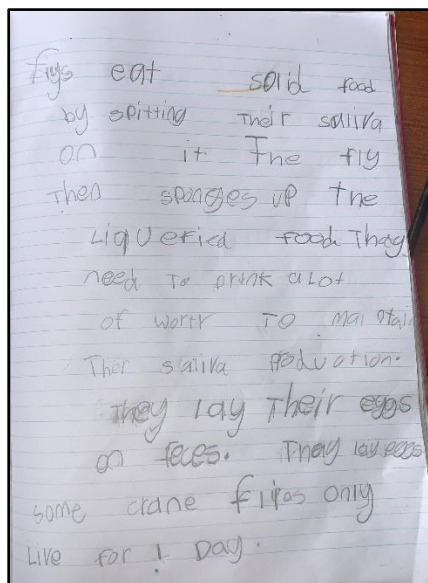 flys eat solid food
by spitting Their saliva
on it The fly
Then sponges up the
LiqUeried food They
need To drink a Lot
of wortr TO maintain
Their saliva production.
They lay Their eggs
on feces. They lay eggs
some crane flies only
Live for 1 Day.